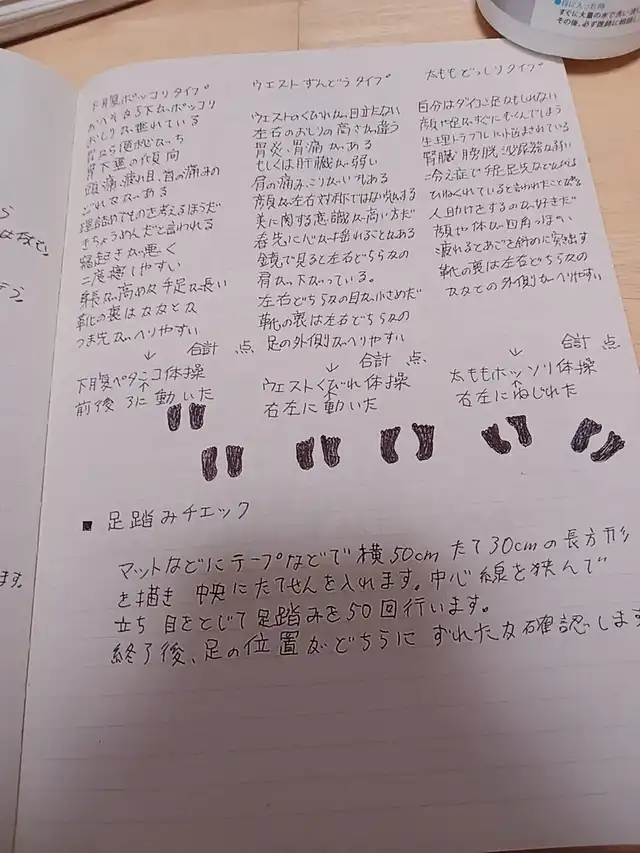 下腹ポッコリタイプ
おへそから下がポッコリ
おしりが垂れている
胃下垂の傾向
頭痛、疲れ目、首の痛みの
どれかがある
理詰めでものを考えるほうだ
きちょうめんだと言われる
寝起きが悪く
二度寝しやすい
身長が高めな手足が長い
靴の裏はななとな
つま先がへりやすい
↓ 合計 点
下腹ペタンコ体操
前後ろに動いた
ウエストずんどうタイプ
ウエストのくびれが目立たない
左右のおしりの高さが違う
胃炎、胃痛がある
もしくは肝臓が弱い
肩の痛み、こりがいつもある
顔が左右対称ではない気がする
美に関する意識が高い方だ
春先に心が揺れることがある
鏡で見ると左右どちらかの
肩が下がっている。
左右どちらかの目が小さめだ
靴の裏は左右どちらかの
足の外側がへりやすい
↓ 合計 点
ウエストくびれ体操
右左に動いた
太ももどっしりタイプ
自分はダイコン足かもしれない
顔や足がすぐにむくんでしまう
生理トラブルに悩まされている
腎臓、膀胱、泌尿器が弱い
冷え症で手足先など
ひねくれていると言われたことがある
人助けをするのが好きだ
顔や体が四角っぽい
疲れるとあごを斜めに突出す
靴の裏は左右どちらかの
かかとの外側がへりやすい
↓ 合計 点
太ももホッソリ体操
右左にねじれた
■ 足踏みチェック
マットなどにテープなどで横50cm たて30cmの長方形
を描き 中央にたてせんを入れます。中心線を挟んで
立ち 目をとじて足踏みを50回行います。
終了後、足の位置がどちらに ずれたか確認します
ます。
目に入った時
すぐに大量の水で洗い
その後、必ず医師に相談し